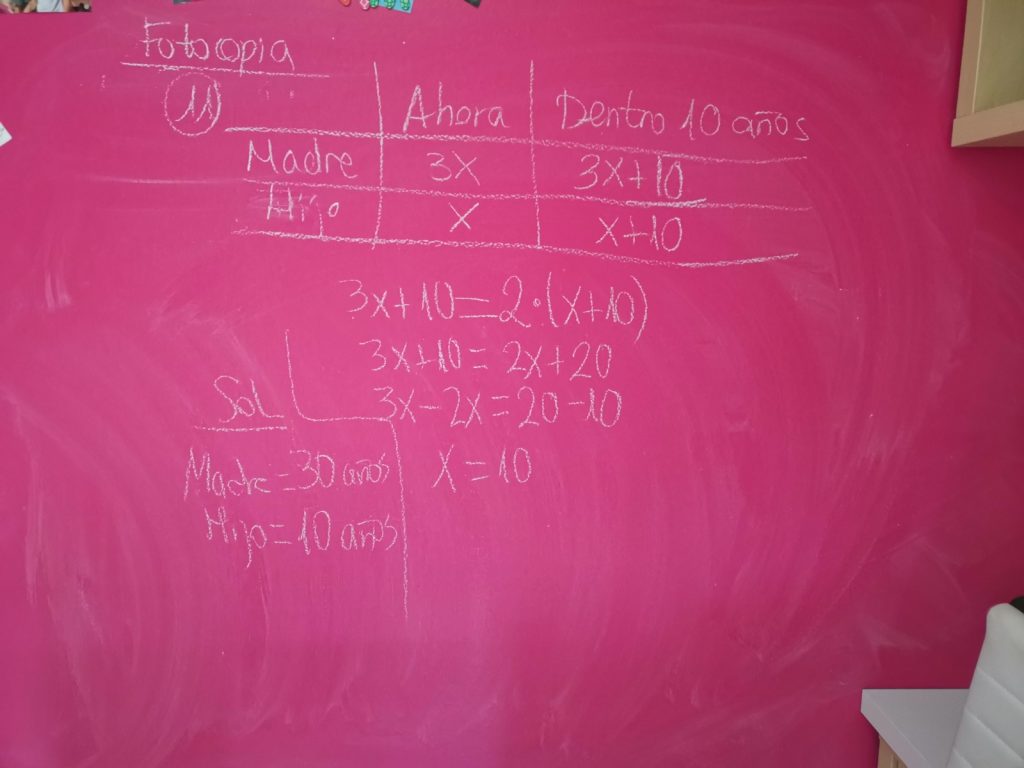 Fotocopia
11
Ahora Dentro 10 años
Madre 3x 3x+10
Hijo x x+10
3x+10=2·(x+10)
3x+10=2x+20
3x-2x=20-10
x=10
Sol
Madre=30 años
Hijo=10 años